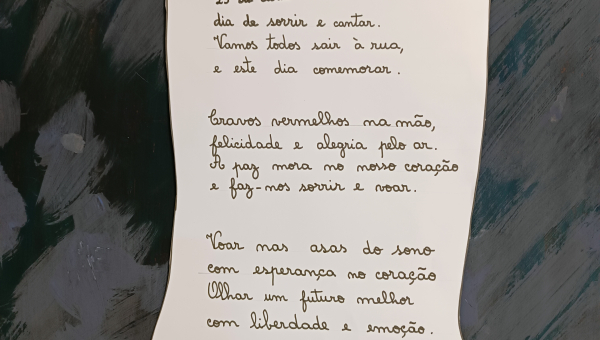 dia de sorrir e cantar.
Vamos todos sair à rua,
e este dia comemorar.
Cravos vermelhos na mão,
felicidade e alegria pelo ar.
A paz mora no nosso coração
e faz-nos sorrir e voar.
Voar nas asas do sono
com esperança no coração
Olhar um futuro melhor
com liberdade e emoção.